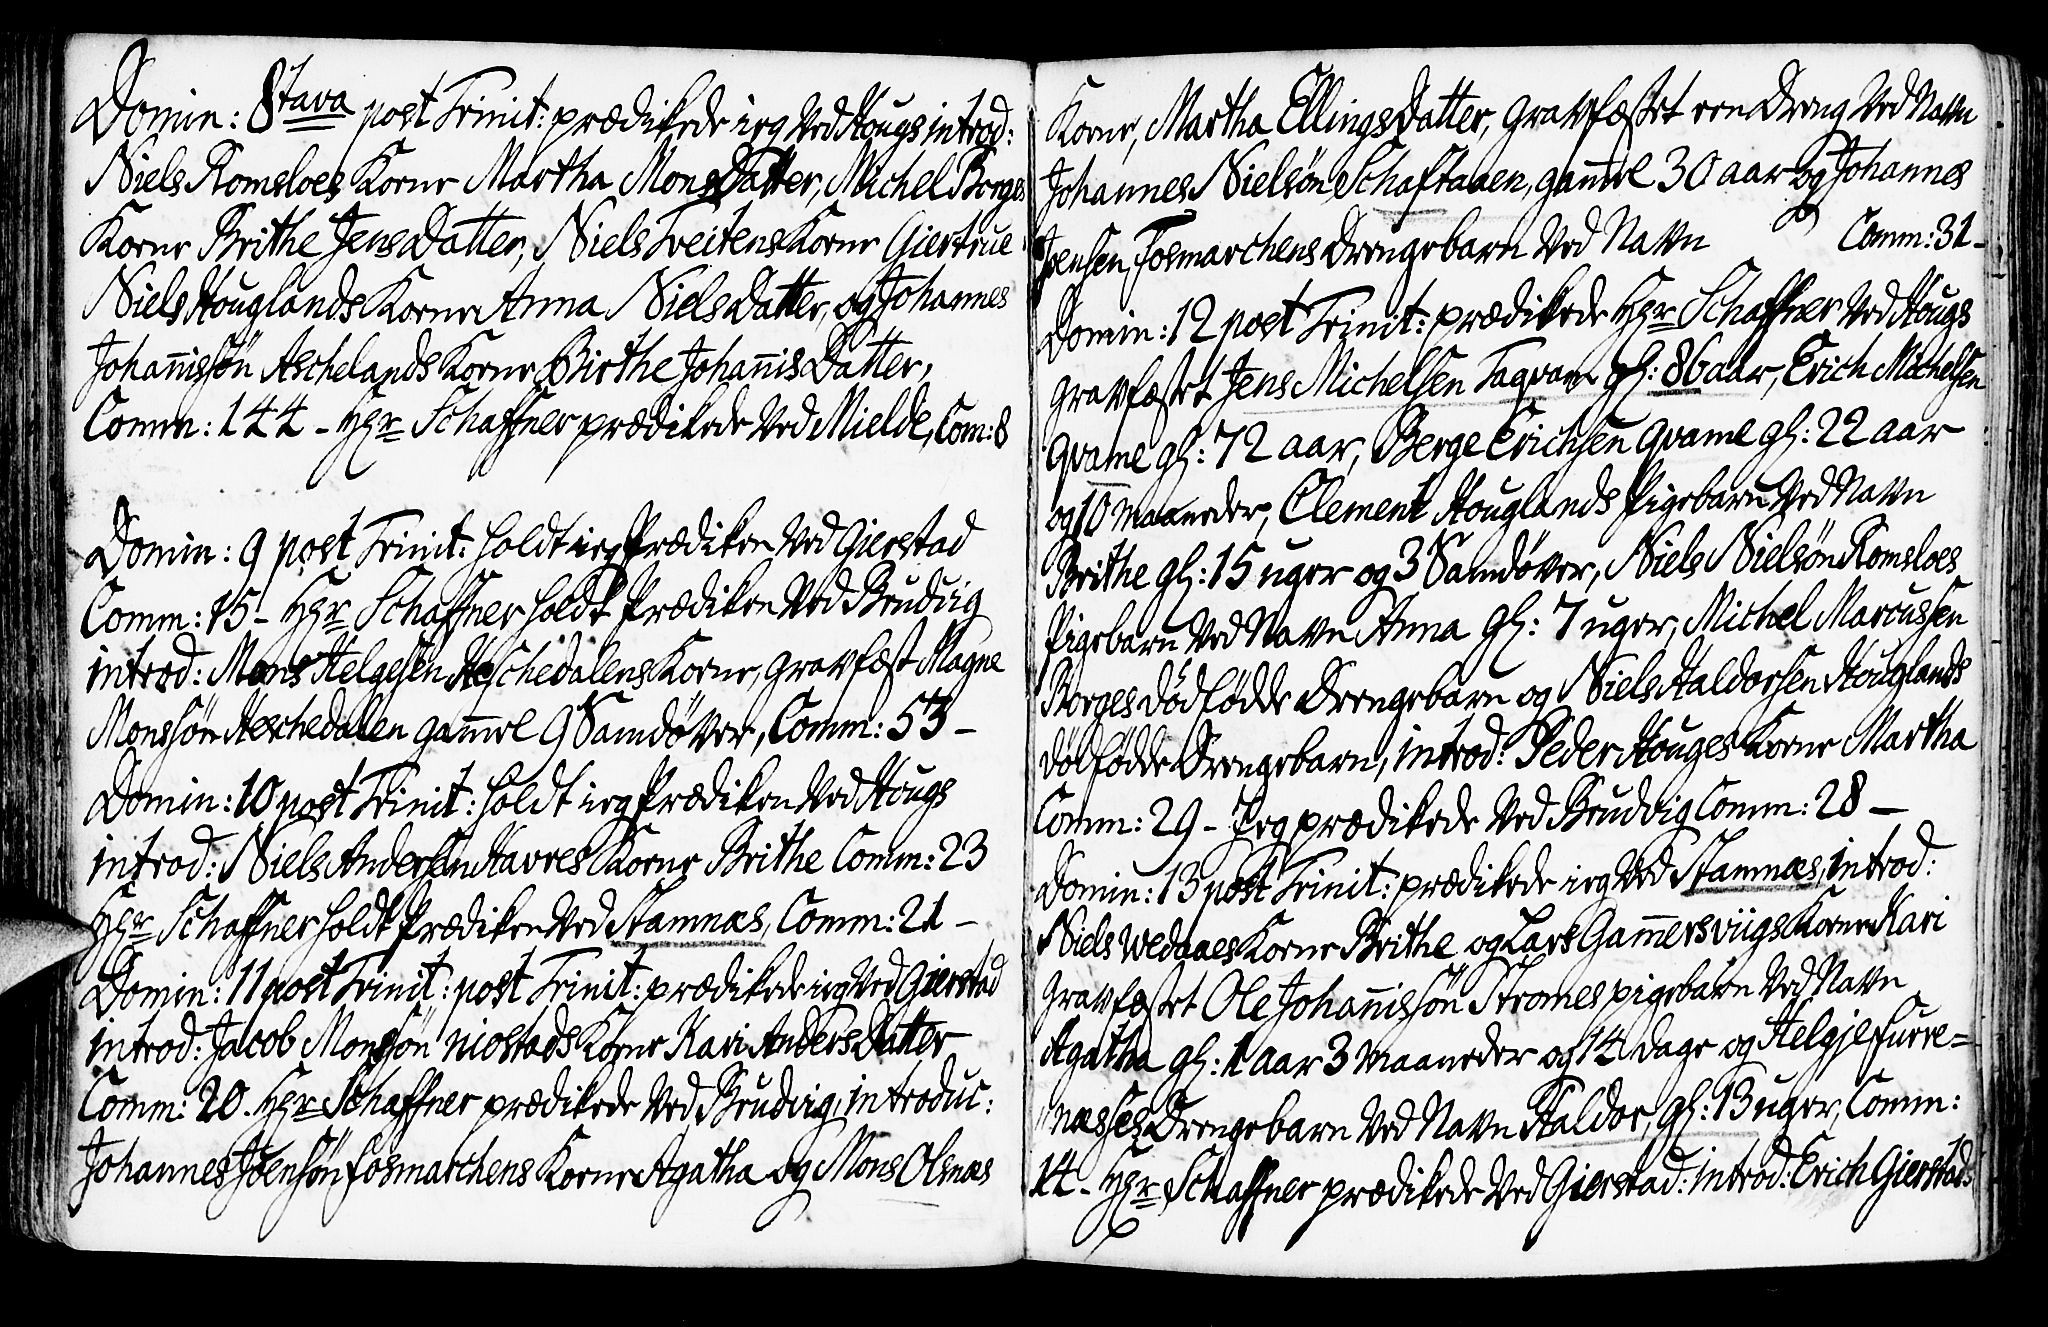 Domin: 8tava post Trinit: prædikede ieg Ved Hougs introd:
Niels Romsloes Kone Martha MonsDatter, Michel Borges
Kone Brithe JensDatter, Niels Treitens Kone Giertrue
Niels Houglands Kone Anna NielsDatter, og Johannes
Johanissön Aschelands Kone Birthe JohanisDatter,
Comm: 144 - Hgr Schaffner prædikede Ved Mielde, Com: 8
Domin: 9 post Trinit: holdt ieg Prædiken Ved Gierstad
Comm: 15 - Hgr Schaffner holdt Prædiken Ved Brudvig
introd: Mons Helgesen Heschedalens Kone, gravfæst Magne
Monssön Heschedalen gamel 9 Samdøver, Comm: 53 -
Domin: 10 post Trinit: holdt ieg Prædiken Ved Hougs
introd: Niels Andersen Havres Kone Brithe Comm: 23
Hgr Schaffner holdt Prædiken Ved Stamnæs, Comm: 21 -
Domin: 11 post Trinit: post Trinit: prædikede ieg Ved Gierstad
introd: Jacob Monssön miostads Kone Kari AndersDatter
Comm: 20. Hgr Schaffner prædikede Ved Brudvig, introduc:
Johannes Joensön fosmarchens Kone Agatha og Mons Olsnæs
Kone, Martha EllingsDatter, gravfæstet een Dreng Ved Navn
Johannes Nielsön Schaftaaen, gamel 30 aar og Johannes
Joensen, Fosmarchens Drengebarn Ved Navn Comm: 31 -
Domin: 12 post Trinit: prædikede Hgr Schaffner Ved Hougs
gravfæstet Jens Michelsen Taqvam gl: 86 aar, Erich Michelsen
qvame gl: 72 aar, Berge Erichsen qvame gl: 22 aar
og 10 maaneder, Clement Houglands Pigebarn Ved Navn
Brithe gl: 15 uger og 3 Samdøver, Niels Nielsön Romsloes
Pigebarn Ved Navn Anna gl: 7 uger, Michel Marcussen
Borges dödfödde Drengebarn og Niels Haldorsen Houglands
dödfödde Drengebarn, introd: Peder Houges Kone Martha
Comm: 29 - Jeg prædikede Ved Brudvig Comm: 28 -
Domin: 13 post Trinit: prædikede ieg Ved Stamnæs, introd:
Niels Wedaaes Kone Brithe og Lars Gamersviigs Kone Kari
gravfæstet Ole Johanissön Stromes pigebarn Ved Navn
Agatha gl: 1 aar 3 maaneder og 14 dage og Helgje furre=
næsses Drengebarn Ved Navn Haldor, gl: 13 uger, Comm:
14 - Hgr Schaffner prædikede Ved Gierstad: introd: Erich Gierstads